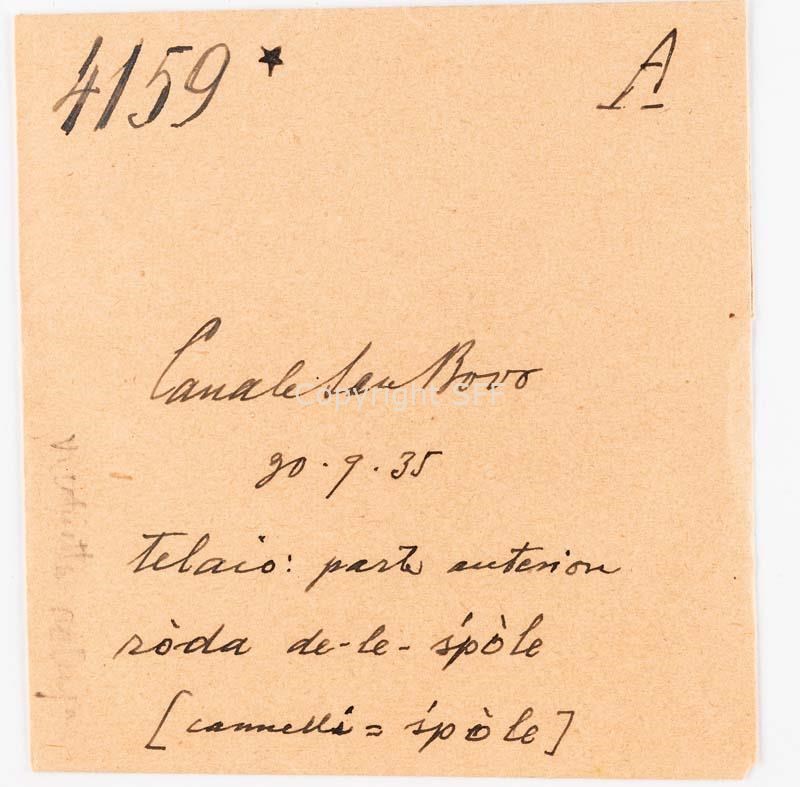 4159 * A
Canale San Bovo
20.9.35
telaio: parte anteriore
ròda de-le-śpòle
[cannelli = śpòle]
Copyright SFF